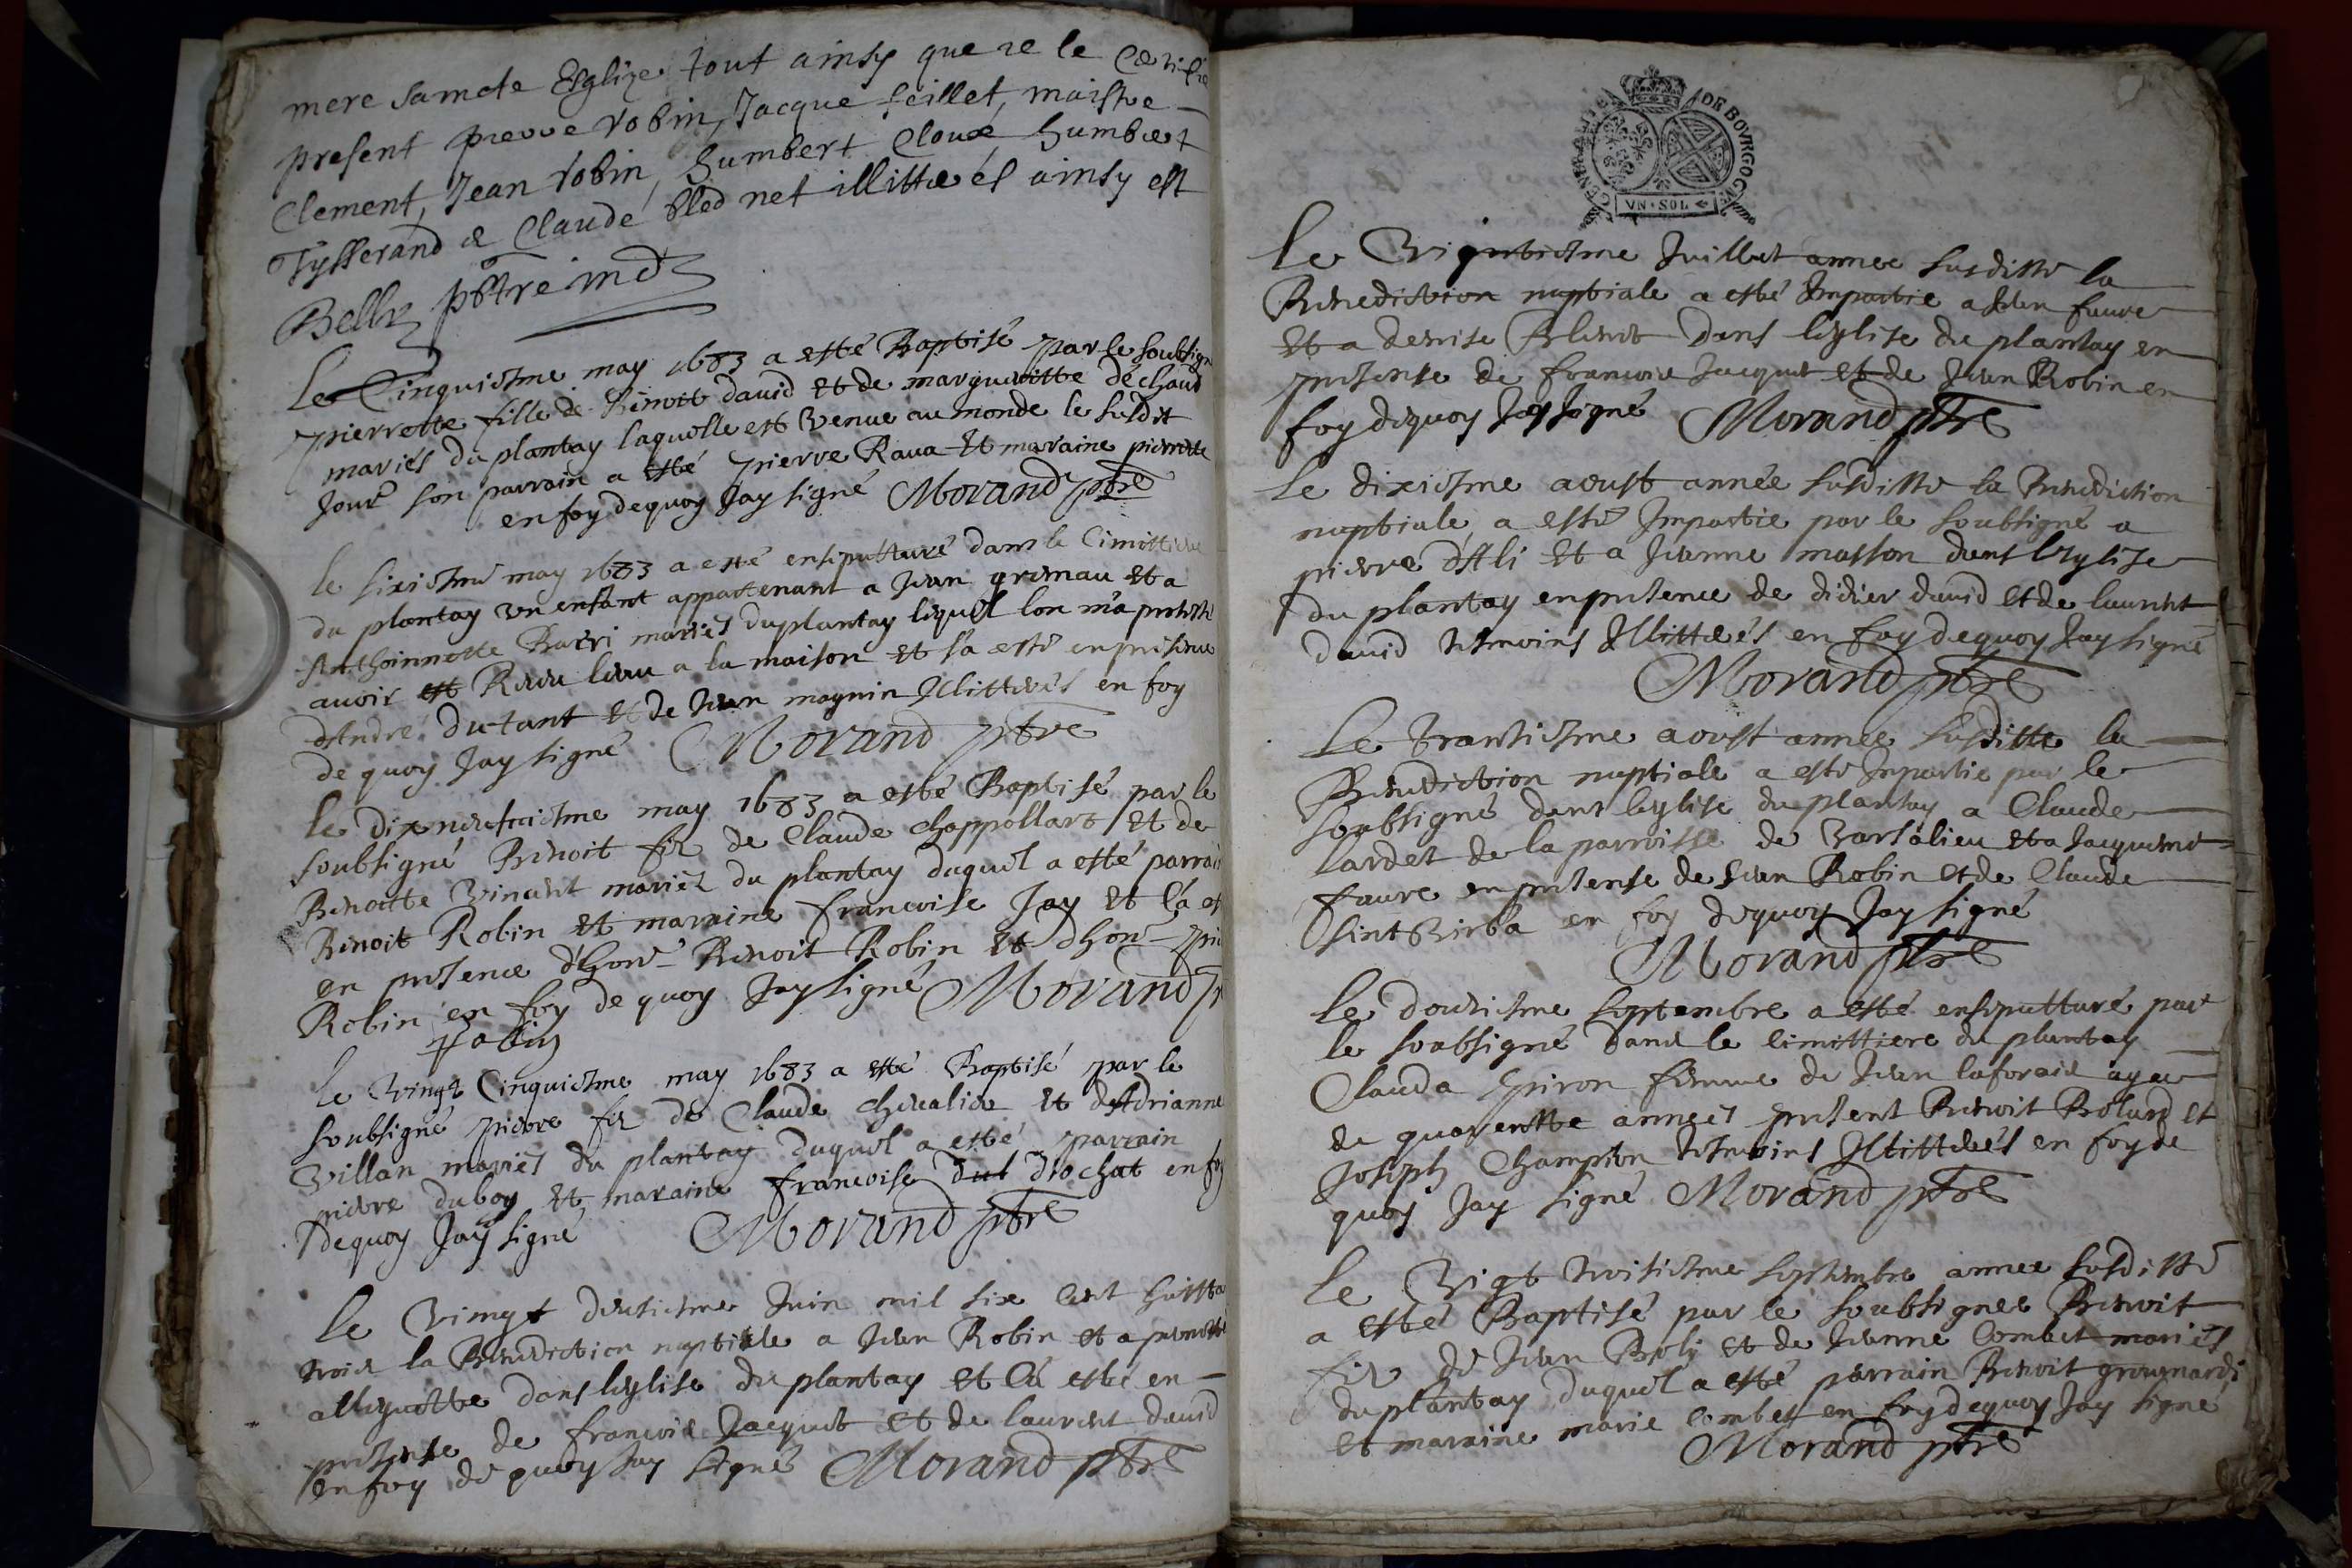 mere saincte Esglize tout ainsy que ie le certifie
present pierre robin, Jacque feillet, maistre
Clement, Jean robin, humbert Cloué, humbert
Tysserand & Claude bled net illitterés ainsy est
Belly pbtre
Le Cinquiesme may 1683 a esté Baptisé par le soubsigné
pierrette fille de Benoit david et de marguerite déchaud
mariés du plantay laquelle est venue au monde le susdit
Jour son parrain a esté pierre Raua et maraine pierrette
en foy dequoy Jay signé Morand ptre
le sixiesme may 1683 a esté ensepulturé dans le Cimittiere
du plantay un enfant appartenant a Jean gremau et a
Anthoinnette Barri mariés du plantay lequel lon m'a protesté
auoir est Receu leau a la maison et sa esté en presence
dAndré dutant et de Jean magnin Illitterés en foy
de quoy Jay signé Morand ptre
le dixneufuiesme may 1683 a esté Baptisé par le
soubsigné Benoit fiz de Claude Chappollart et de
Benoitte Vincent mariéz du plantay duquel a esté parrain
Benoit Robin et maraine francoise Jay et ça est
en presence dhon Benoit Robin et dhon
Robin en foy de quoy Jay signé Morand
Robin
le vingt Cinquiesme may 1683 a esté Baptisé par le
soubsigné pierre fiz de Claude Chevalier et dAdrianne
Villan mariés du plantay duquel a esté parrain
pierre duboy et maraine francoise dul drochat en foy
dequoy Jay signé Morand ptre
le vingt deusiesme Juin mil six cent huitta
trois la Benediction nuptiale a Jean Robin et a
alleguette dans leglise du plantay et ça esté en
presense de francois Jacquet et de laurent david
en foy de quoy Jay signé Morand ptre
GENERALITE DE BOVRGOGNE
VN SOL
Le Vigntiesme Juillet annee susditte la
Benediction nuptiale a esté Impartie a Jean faure
et a denise Blenet dans leglise du plantay en
presense de francois Jacquet et de Jean Robin en
foy dequoy Jay signé Morand ptre
Le dixiesme aoust année susditte la Benediction
nuptiale a esté Impartie par le soubsigné a
pierre dAli et a Jeanne masson dans leglise
du plantay en presence de didier david et de laurent
david tesmoins Illitterés en foy dequoy Jay signé
Morand ptre
Le trantiesme aoust annee susditte la
Benediction nuptiale a esté Inpartie par le
soubsigné dans leglise du plantay a Claude
lardet de la parroisse de Varsalieu et a Jacqueme
faure en presense de Jean Robin et de Claude
sint en foy dequoy Jay signé
Morand ptre
Le dousiesme septembre a esté ensepulturé par
le soubsigné dans le Cimittiere du plantay
Clauda Spiron femme de Jean laforais agee
de quarentte annees present Benoit Boland et
Joseph Champion tesmoins Illitterés en foy de
quoy Jay signé Morand ptre
le vigt troisiesme septembre annee susditte
a esté Baptisé par le soubsignet Benoit
fiz de Jean Boly et de Jeanne Combet mariés
du plantay duquel a esté parrain Benoit gromardi
et maraine marie Combet en foy dequoy Jay signé
Morand ptre